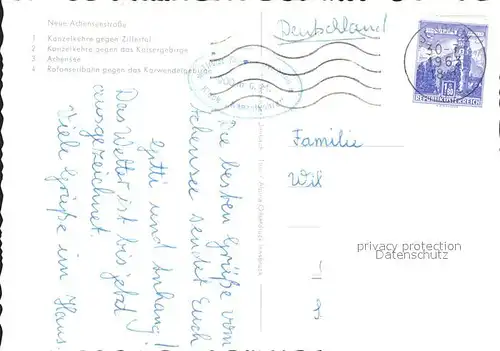 Neue Achenseestraße
1 Kanzelkehre gegen Zillertal
2 Kanzelkehre gegen das Kaisergebirge
3 Achensee
4 Rofanseilbahn gegen das Karwendelgebirge
Deutschland
30
1963
18
1.80
REPUBLIK ÖSTERREICH
Die besten Grüße vom
Achensee sendet Euch
Gitti und Anhang!
Das Wetter ist bis jetzt
ausgezeichnet.
Viele Grüße im Haus.
Familie
Wil
privacy protection
Datenschutz